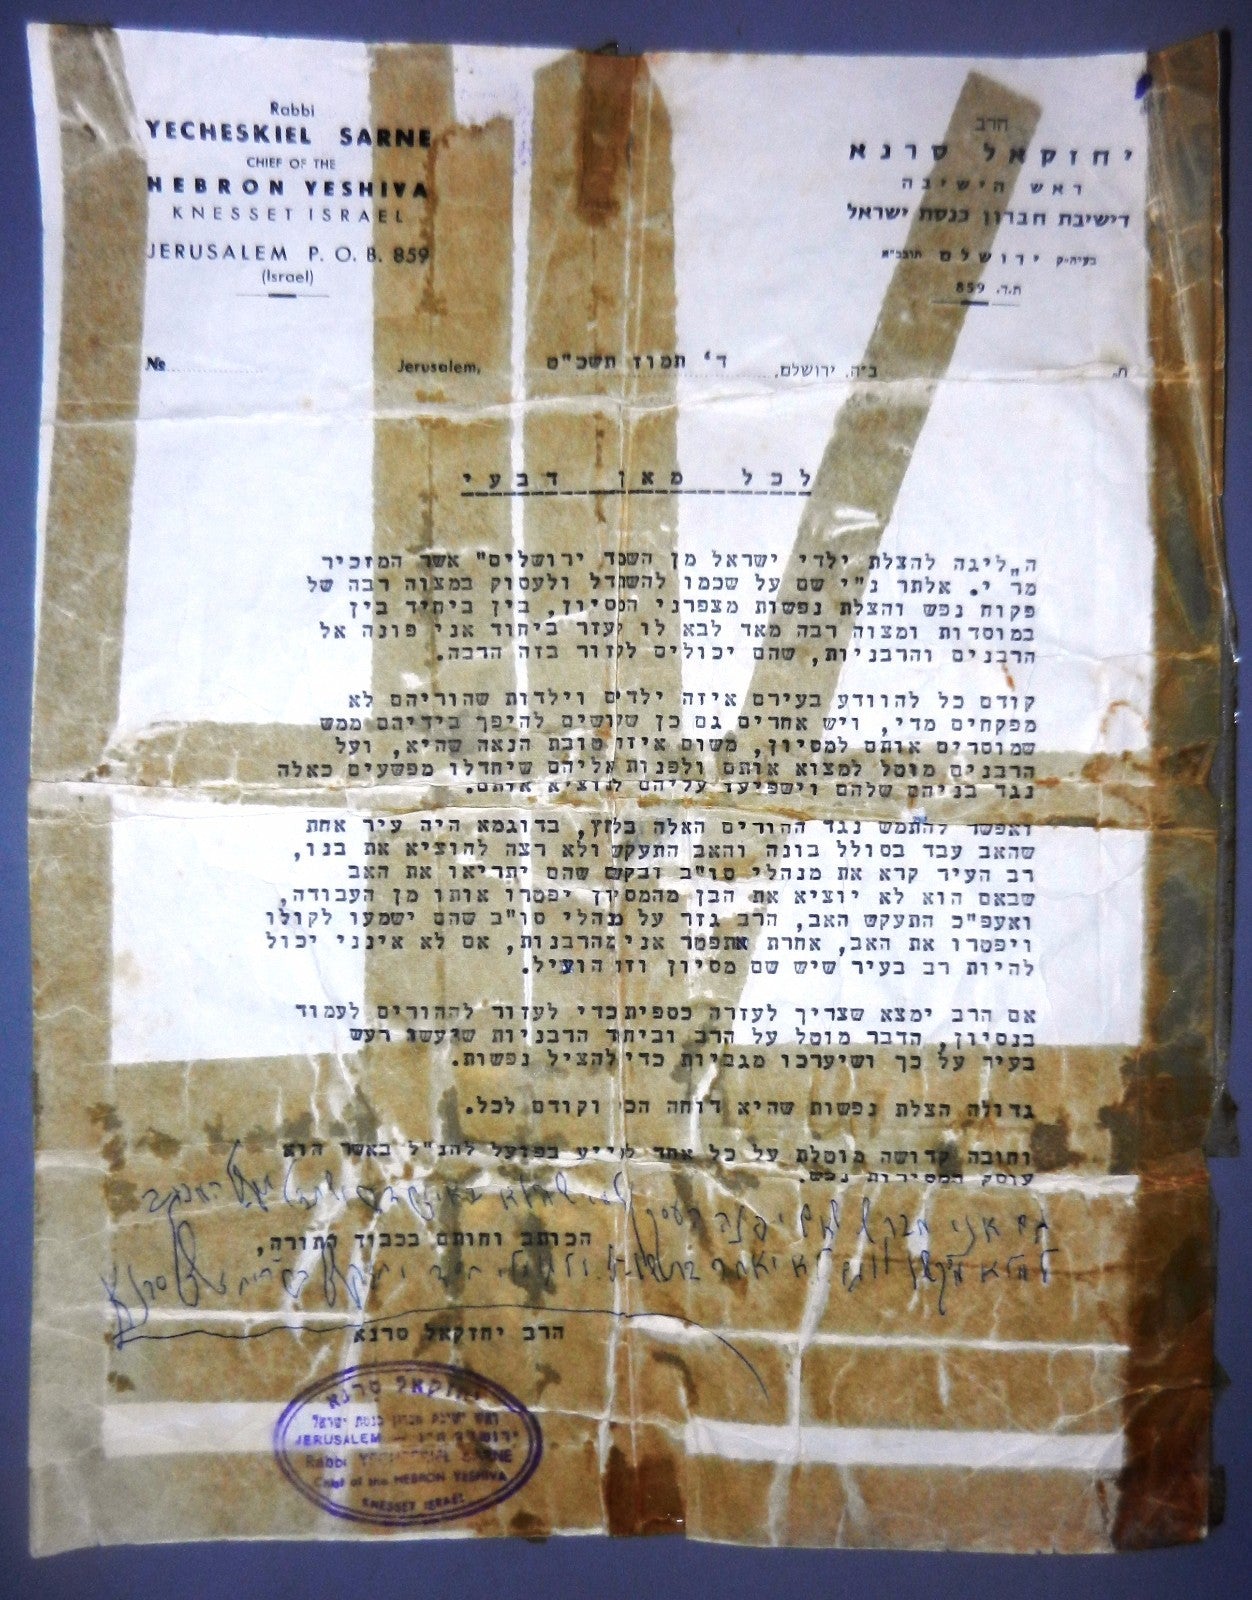 Rabbi
YECHESKIEL SARNE
CHIEF OF THE
HEBRON YESHIVA
KNESSET ISRAEL
JERUSALEM P. O. B. 859
(Israel)
הרב
יחזקאל סרנא
ראש הישיבה
דישיבת חברון כנסת ישראל
בעיה״ק ירושלם תובב״א
ת.ד. 859
№ Jerusalem, ד' תמוז תשכ"ט ב״ה. ירושלם,
לכל מאן דבעי
ה„ליגה להצלת ילדי ישראל מן השמד ירושלים" אשר המזכיר
מר י. אלתר נ"י שם על שכמו להשתדל ולעסוק במצוה רבה של
פקוח נפש והצלת נפשות מצפרני המסיון, בין ביחיד בין
במוסדות ומצוה רבה מאד לבא לו לעזר ביחוד אני פונה אל
הרבנים והרבניות, שהם יכולים לעזור בזה הרבה.
קודם כל להוודע בעירם איזה ילדים וילדות שהוריהם לא
מפקחים מדי, ויש אחרים גם כן שעושים להיפך בידיהם ממש
שמוסרים אותם למסיון, משום איזו טובת הנאה שהיא, ועל
הרבנים מוטל למצוא אותם ולפנות אליהם שיחדלו מפשעים כאלה
נגד בניהם שלהם וישפיעו עליהם להוציא אותם.
ואפשר להתמש נגד ההורים האלה בלחץ, בדוגמא היה עיר אחת
שהאב עבד בסולל בונה והאב התעקש ולא רצה להוציא את בנו,
רב העיר קרא את מנהלי סו"ב ובקש שהם יתריאו את האב
שבאם הוא לא יוציא את הבן מהמסיון יפטרו אותו מן העבודה,
ואעפ"כ התעקש האב, הרב גזר על מנהלי סו"ב שהם ישמעו לקולו
ויפטרו את האב, אחרת אתפטר אני מהרבנות, אם לא אינני יכול
להיות רב בעיר שיש שם מסיון וזו הועיל.
אם הרב ימצא שצריך לעזרה כספית כדי לעזור לההורים לעמוד
בנסיון, הדבר מוטל על הרב וביחד הרבניות שיעשו רעש
בעיר על כך ושיערכו מגביות כדי להציל נפשות.
גדולה הצלת נפשות שהיא דוחה הכל וקודם לכל.
וחובה קדושה מוטלת על כל אחד לסייע בפועל להנ"ל באשר הוא
עוסק במסירות נפש.
גם אני
הכותב וחותם בכבוד התורה,
סרנא
הרב יחזקאל סרנא
יחזקאל סרנא
ראש ישיבת חברון כנסת ישראל
ירושלים
JERUSALEM
Rabbi YECHESKIEL SARNE
Chief of the HEBRON YESHIVA
KNESSET ISRAEL